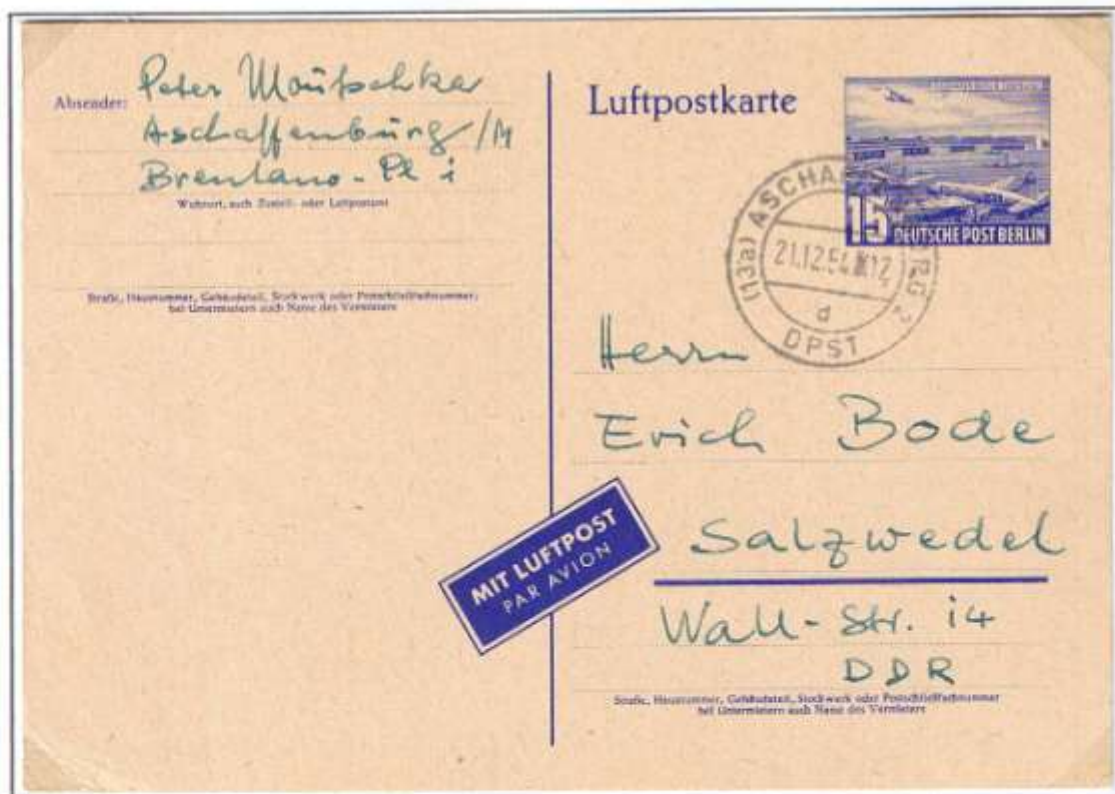 Absender:
Peter
Aschaffenburg/M
Brentano-Pl 1
Wohnort, auch Zustell- oder Leitpostamt
Straße, Hausnummer, Gebäudeteil, Stockwerk oder Postschließfachnummer;
bei Untermietern auch Name des Vermieters
Luftpostkarte
15 DEUTSCHE POST BERLIN
(13a) ASCHA BRG 2
21.12.54
d
DPST
Herrn
Erich Bode
Salzwedel
Wall-Str. 14
DDR
MIT LUFTPOST
PAR AVION
Straße, Hausnummer, Gebäudeteil, Stockwerk oder Postschließfachnummer
bei Untermietern auch Name des Vermieters